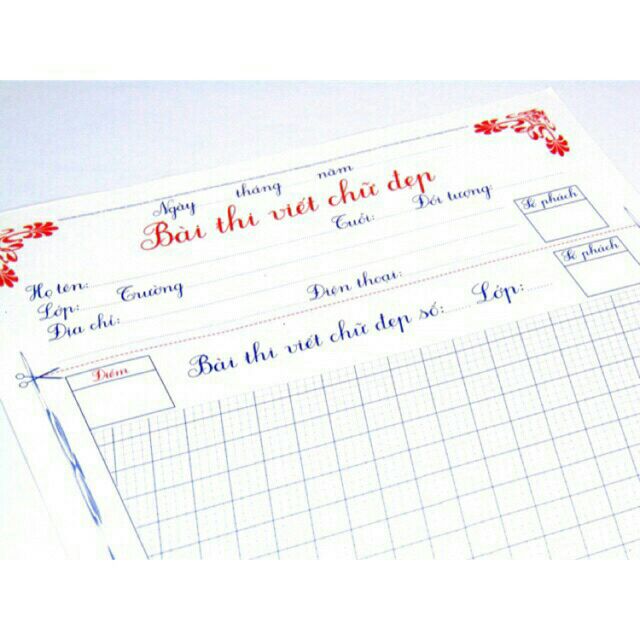 Ngày tháng năm
Bài thi viết chữ đẹp
Họ tên: Tuổi: Đối tượng:
Lớp: Trường
Địa chỉ: Điện thoại:
Số phách
Số phách
Điểm
Bài thi viết chữ đẹp số: Lớp: